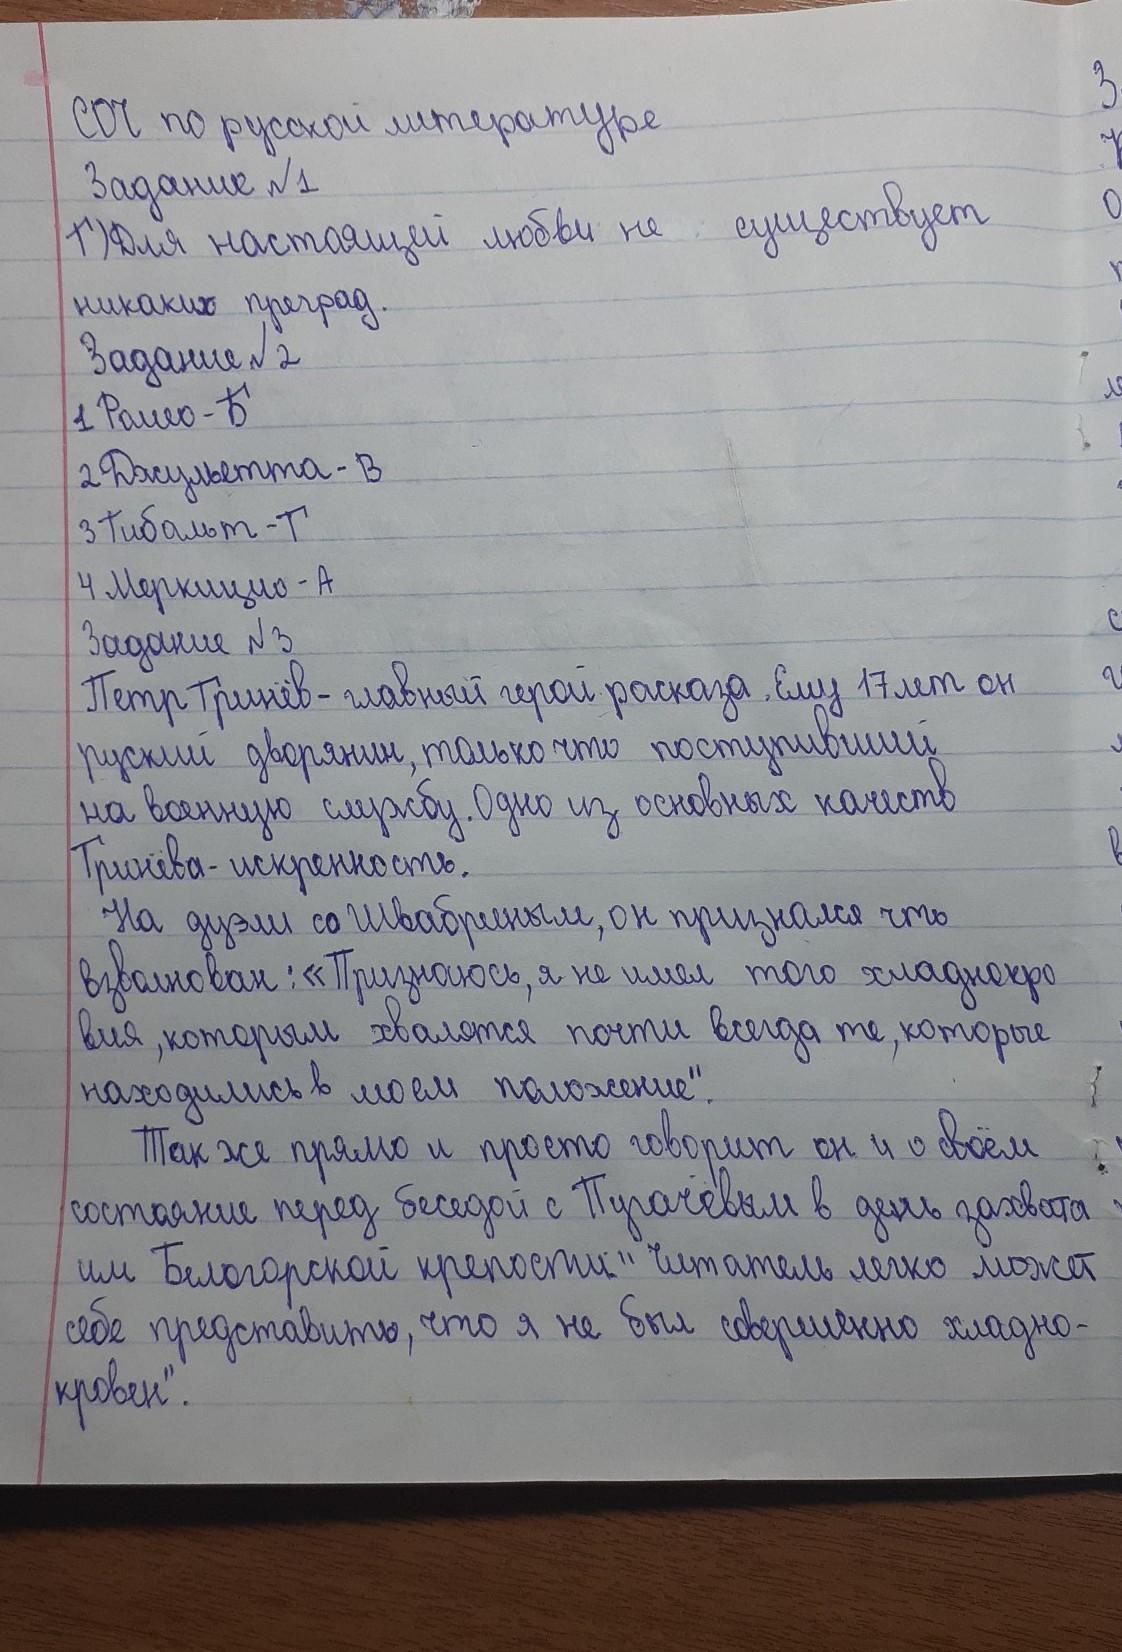 СОЧ по русской литературе
Задание №1
Г) Для настоящей любви не существует
никаких преград.
Задание №2
1 Ромео - Б
2 Джульетта - В
3 Тибальт - Г
4 Меркицио - А
Задание №3
Петр Гринёв - главный герой расказа. Ему 17 лет он
руский дворянин, только что поступивший
на военную службу. Одно из основных качеств
Гринёва - искренность.
На дуэли со Швабриным, он признался что
взволнован: «Признаюсь, я не имел того хладнокро
вия, которым хвалятся почти всегда те, которые
находились в моем положение".
Так же прямо и просто говорит он и о своём
состояние перед беседой с Пугачёвым в день захвата
им Белогорской крепости: "Читатель легко может
себе представить, что я не был совершенно хладно-
кровен".